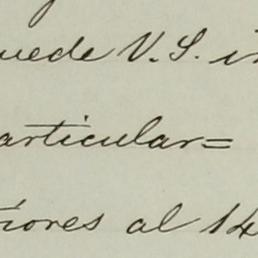 uede V.S. in
articular=
riores al 14